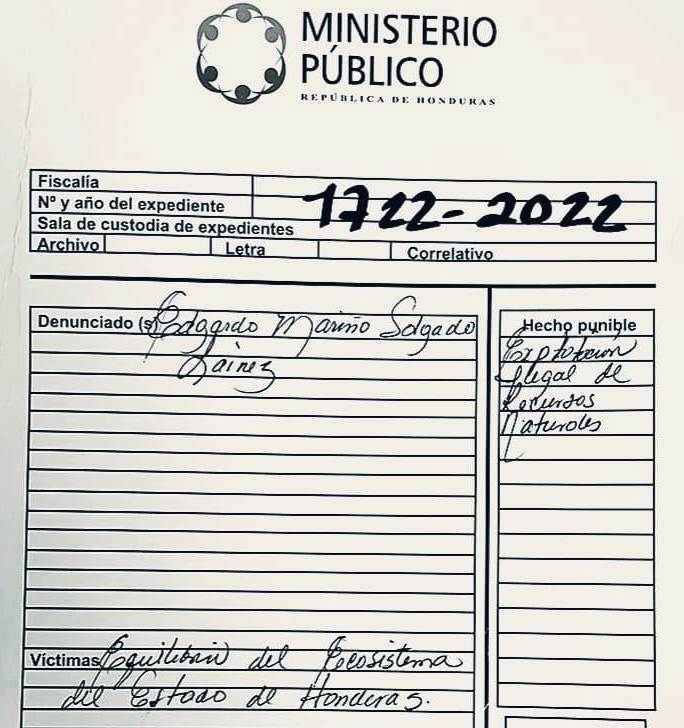 MINISTERIO
PÚBLICO
REPÚBLICA DE HONDURAS
Fiscalía
Nº y año del expediente 1722-2022
Sala de custodia de expedientes
Archivo Letra Correlativo
Denunciado (s) Edgardo Mariño Solgado
Lainez
Hecho punible
Explotacion
Ilegal de
Recursos
Naturales
Víctimas Equilibrio del Ecosistema
del Estado de Honduras.